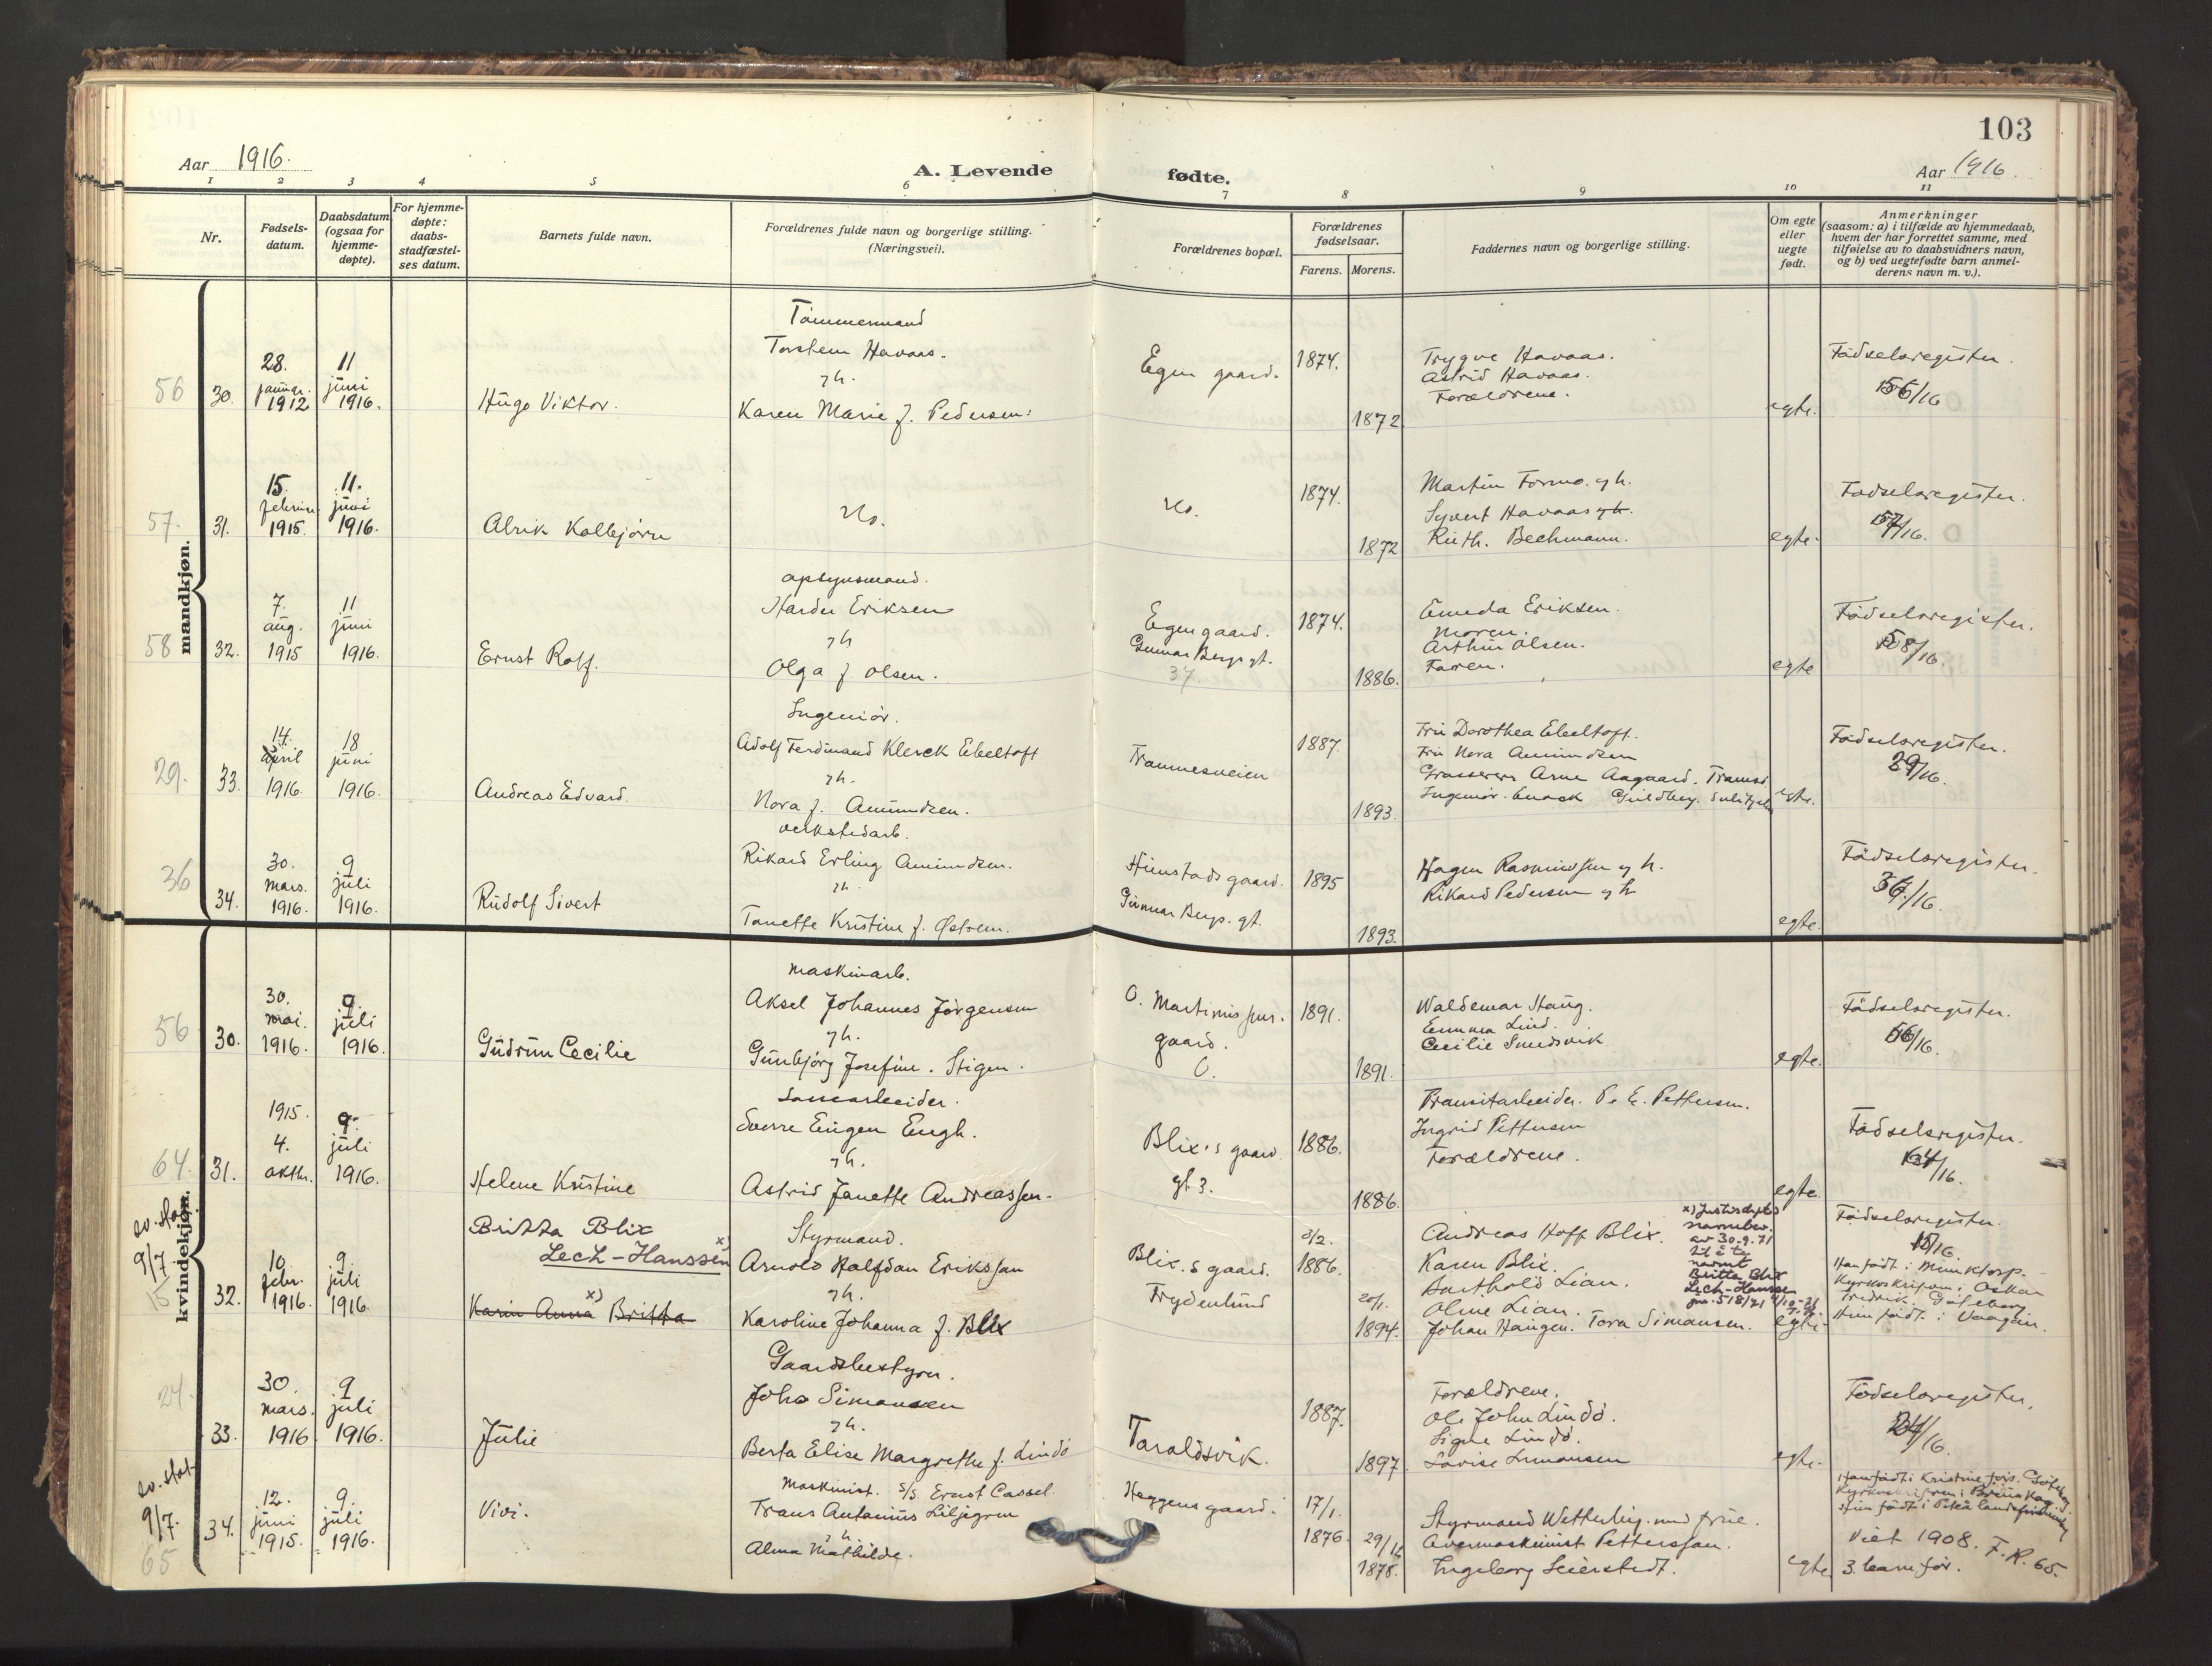 103
Aar 1916.
A. Levende
fødte.
Aar 1916
1 2 3 4 5 6 7 8 9 10 11
Nr.
Fødsels-
datum.
Daabsdatum
(ogsaa for
hjemme-
døpte).
For hjemme-
døpte:
daabs-
stadfæstel-
ses datum.
Barnets fulde navn.
Forældrenes fulde navn og borgerlige stilling.
(Næringsvei).
Forældrenes bopæl.
Forældrenes
fødselsaar.
Farens. Morens.
Faddernes navn og borgerlige stilling.
Om egte
eller
uegte
født.
Anmerkninger
(saasom: a) i tilfælde av hjemmedaab,
hvem der har forrettet samme, med
tilføielse av to daabsvidners navn,
og b) ved uegtefødte barn anmel-
derens navn m. v.).
mandkjøn.
56
30.
28.
januar.
1912
11
juni
1916.
Hugo Viktor.
Tömmermand
Torstein Havaas.
&h.
Karen Marie f. Pedersen.
Egen gaard.
1874.
1872
Trygve Havaas.
Astrid Havaas.
Forældrene.
egte.
Födselsregister.
56/16
57.
31.
15.
februar
1915.
11.
juni
1916.
Alrik Kollbjörn
Do.
Do.
1874.
1872
Martin Formo. & h.
Syvert Havaas & h.
Ruth. Bechmann.
egte.
Födselsregister.
57/16.
58
32.
7.
aug.
1915
11
juni
1916.
Ernst Rolf.
opsynsmand.
Harder Eriksen
&h
Olga f Olsen.
Egen gaard.
Gunnar Bergs gt.
37.
1874.
1886.
Emeda Eriksen.
Moren.
Arthur Olsen.
Faren.
egte
Födselsregister.
58/16.
29.
33.
14.
april
1916.
18
juni
1916.
Andreas Edvard.
Ingeniör.
Adolf Ferdinand Klerck Ebeltoft
&h.
Nora f. Amundsen.
Frammesveien
1887.
1893.
Fru Dorothea Ebeltoft.
Fru Nora Amundsen
Grosserer Arne Aagaard. Tromsö.
Ingeniör. Guldberg. Sulitjelma
egte.
Födselsregister.
29/16.
36
34.
30.
mars.
1916.
9
juli
1916.
Rudolf Sivert
verkstedarb.
Rikard Erling Amundsen.
&h.
Tanette Kristine f. Østrem.
Hunstads gaard.
Gunnar Bergs. gt.
1895
1893.
Hagen Rasmussen & h.
Rikard Pedersen & h
egte.
Födselsregister.
36/16.
kvindekjøn.
56
30.
30.
mai.
1916.
9.
juli
1916.
Gudrun Cecilie
Maskinarb.
Aksel Johannes Jörgensen
&h.
Gunbjörg Josefine. Stigen.
O. Martinussens.
gaard.
O.
1891.
1891.
Waldemar Haug.
Emma Lind.
Cecilie Smedsvik
egte.
Födselsregister.
56/16.
64.
31.
1915.
4.
oktbr.
9.
juli
1916.
Helene Kristine
Sverre Eugen Engh.
&h.
Astrid Janette Andreassen.
Blix's gaard
gt 3.
1886.
1886.
Transitarbeider. P. E. Pettersen.
Ingrid Pettersen
Forældrene.
egte.
Födselsregister.
64/16.
sv. stat.
9/7
15
32.
10.
febr.
1916.
9.
juli
1916.
Britta Blix
Lech-Hanssen x)
x)
Karin Anna Britta
Styrmand.
Arnold Halfdan Eriksson
&h.
Karoline Johanna f. Blix
Blix.s gaard.
Frydenlund
3/2.
1886.
20/1.
1894.
Andreas Hoff Blix.
Karen Blix.
Barthold Lian.
Oline Lian.
Johan Haugen. Tora Simonsen.
x) Justisdepts
navnebev.
av 30.9.71
til å ta
navnet
Britta Blix
Lech-Hanssen
jnr. 518/71
egte.
Födselsregister.
15/16.
Han födt i Munktorp.
Kyrkoskriven i Oskar
Fredrik. Göteborg.
Hun födt i Vaagan.
24
33.
30.
mars.
1916.
9
juli
1916.
Julie
Gaardsbestyrer.
John Simonsen
&h.
Berta Elise Margrethe f. Lindö
Taraldsvik.
1887.
1897.
Forældrene.
Ole John Lindö.
Signe Lindö.
Lovise Simonsen
egte.
Födselsregister.
24/16.
sv. stat.
9/7.
65
34.
12.
juni
1915.
9.
juli
1916.
Vivi.
Maskinist. S/S. Ernst Cassel.
Frans Antonius Liljegren
&h.
Alma Mathilde.
Heggens gaard.
17/1.
1876.
29/12
1878.
Styrmand Wetterling med frue.
Overmaskinist Pettersson.
Ingeborg Seierstedt.
egte.
Han födt i Kristineförs. Göteborg
Viet 1908.
3 barn för.
F.R. 65.